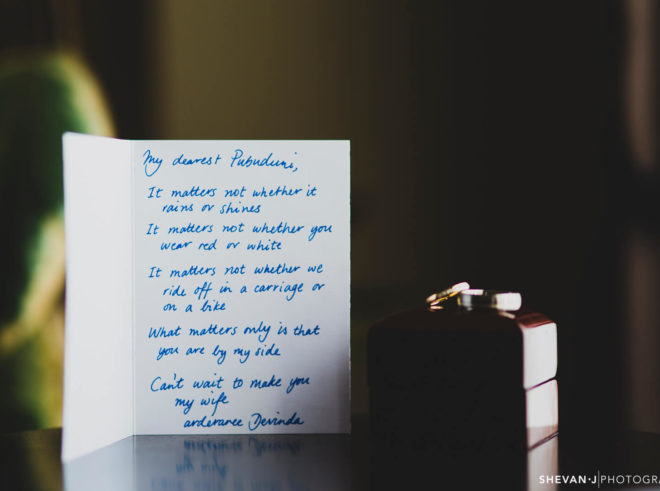 My dearest Pubuduni,
It matters not whether it
rains or shines
It matters not whether you
wear red or white
It matters not whether we
ride off in a carriage or
on a bike
What matters only is that
you are by my side
Can't wait to make you
my wife
Devinda
SHEVAN·J|PHOTOGRA